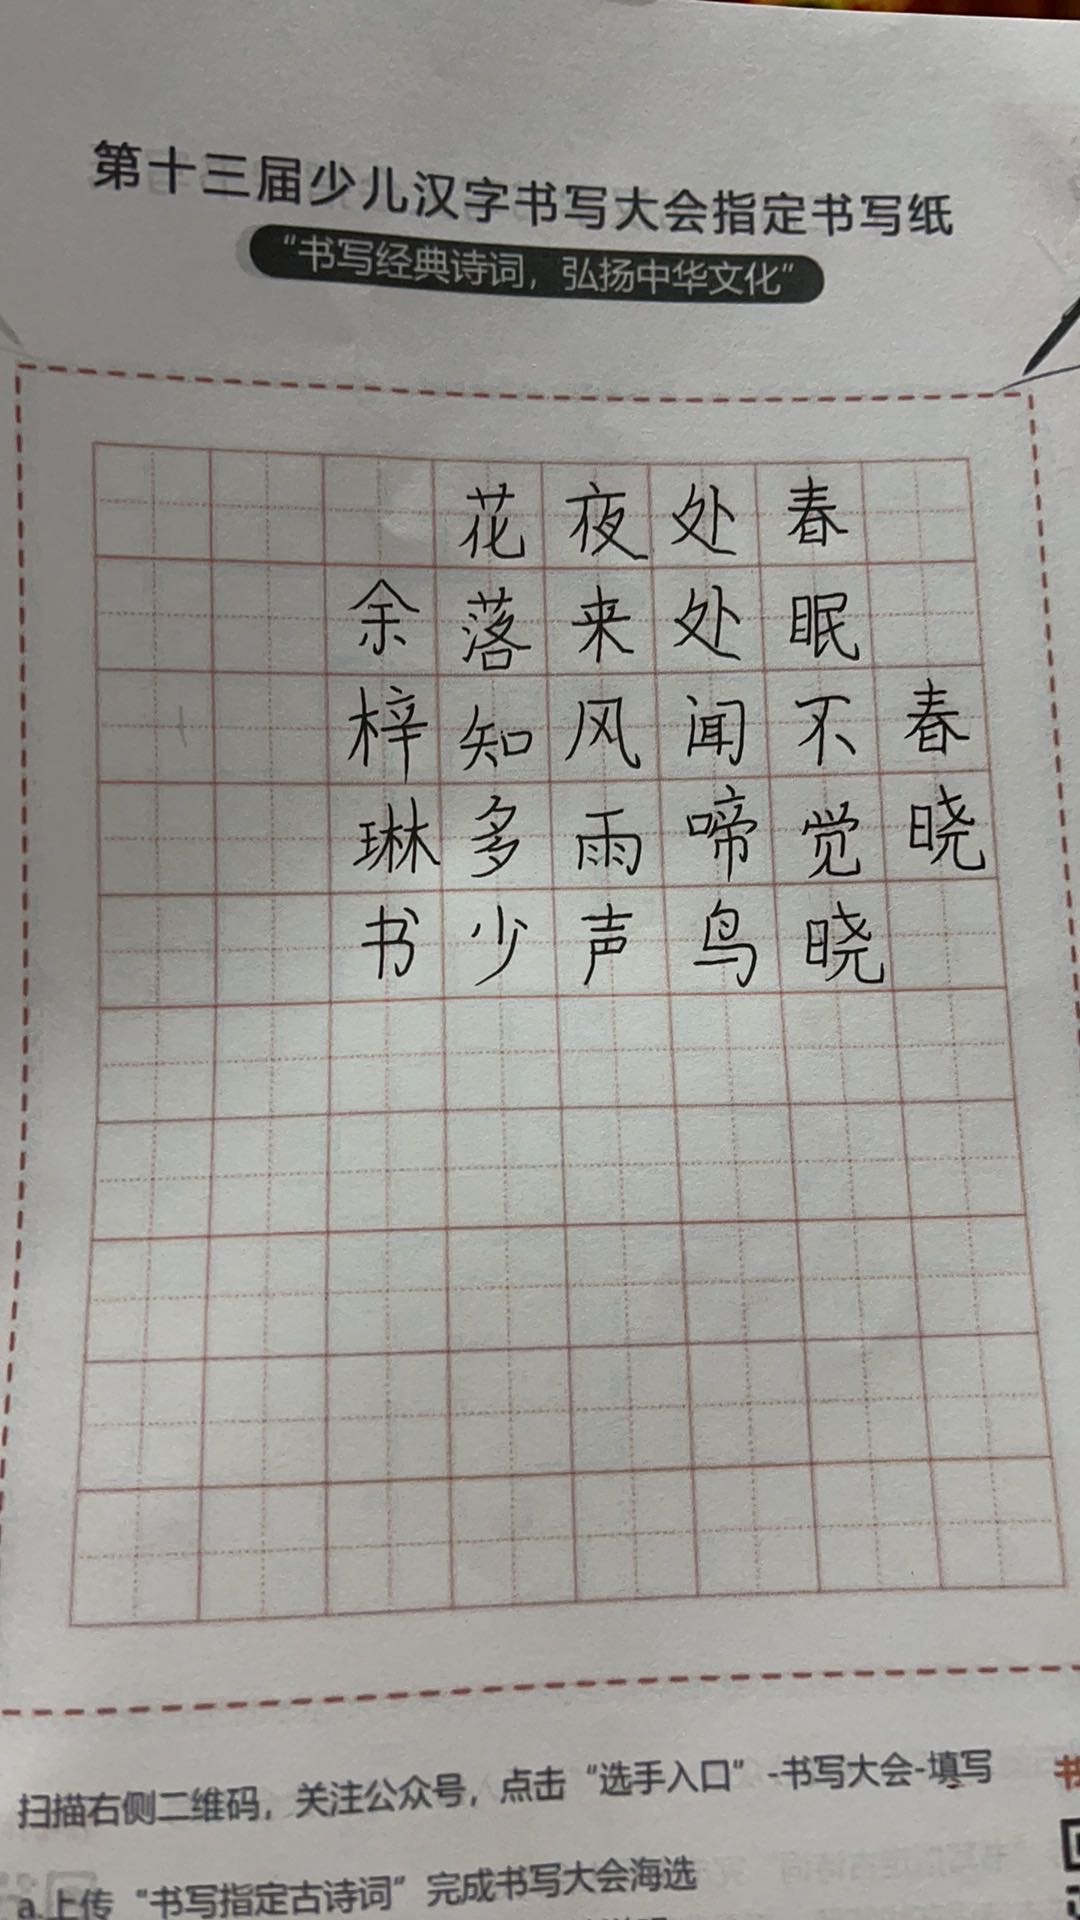 第十三届少儿汉字书写大会指定书写纸
“书写经典诗词，弘扬中华文化”
春晓
春眠不觉晓
处处闻啼鸟
夜来风雨声
花落知多少
余梓琳书
扫描右侧二维码，关注公众号，点击“选手入口”-书写大会-填写
a.上传“书写指定古诗词”完成书写大会海选